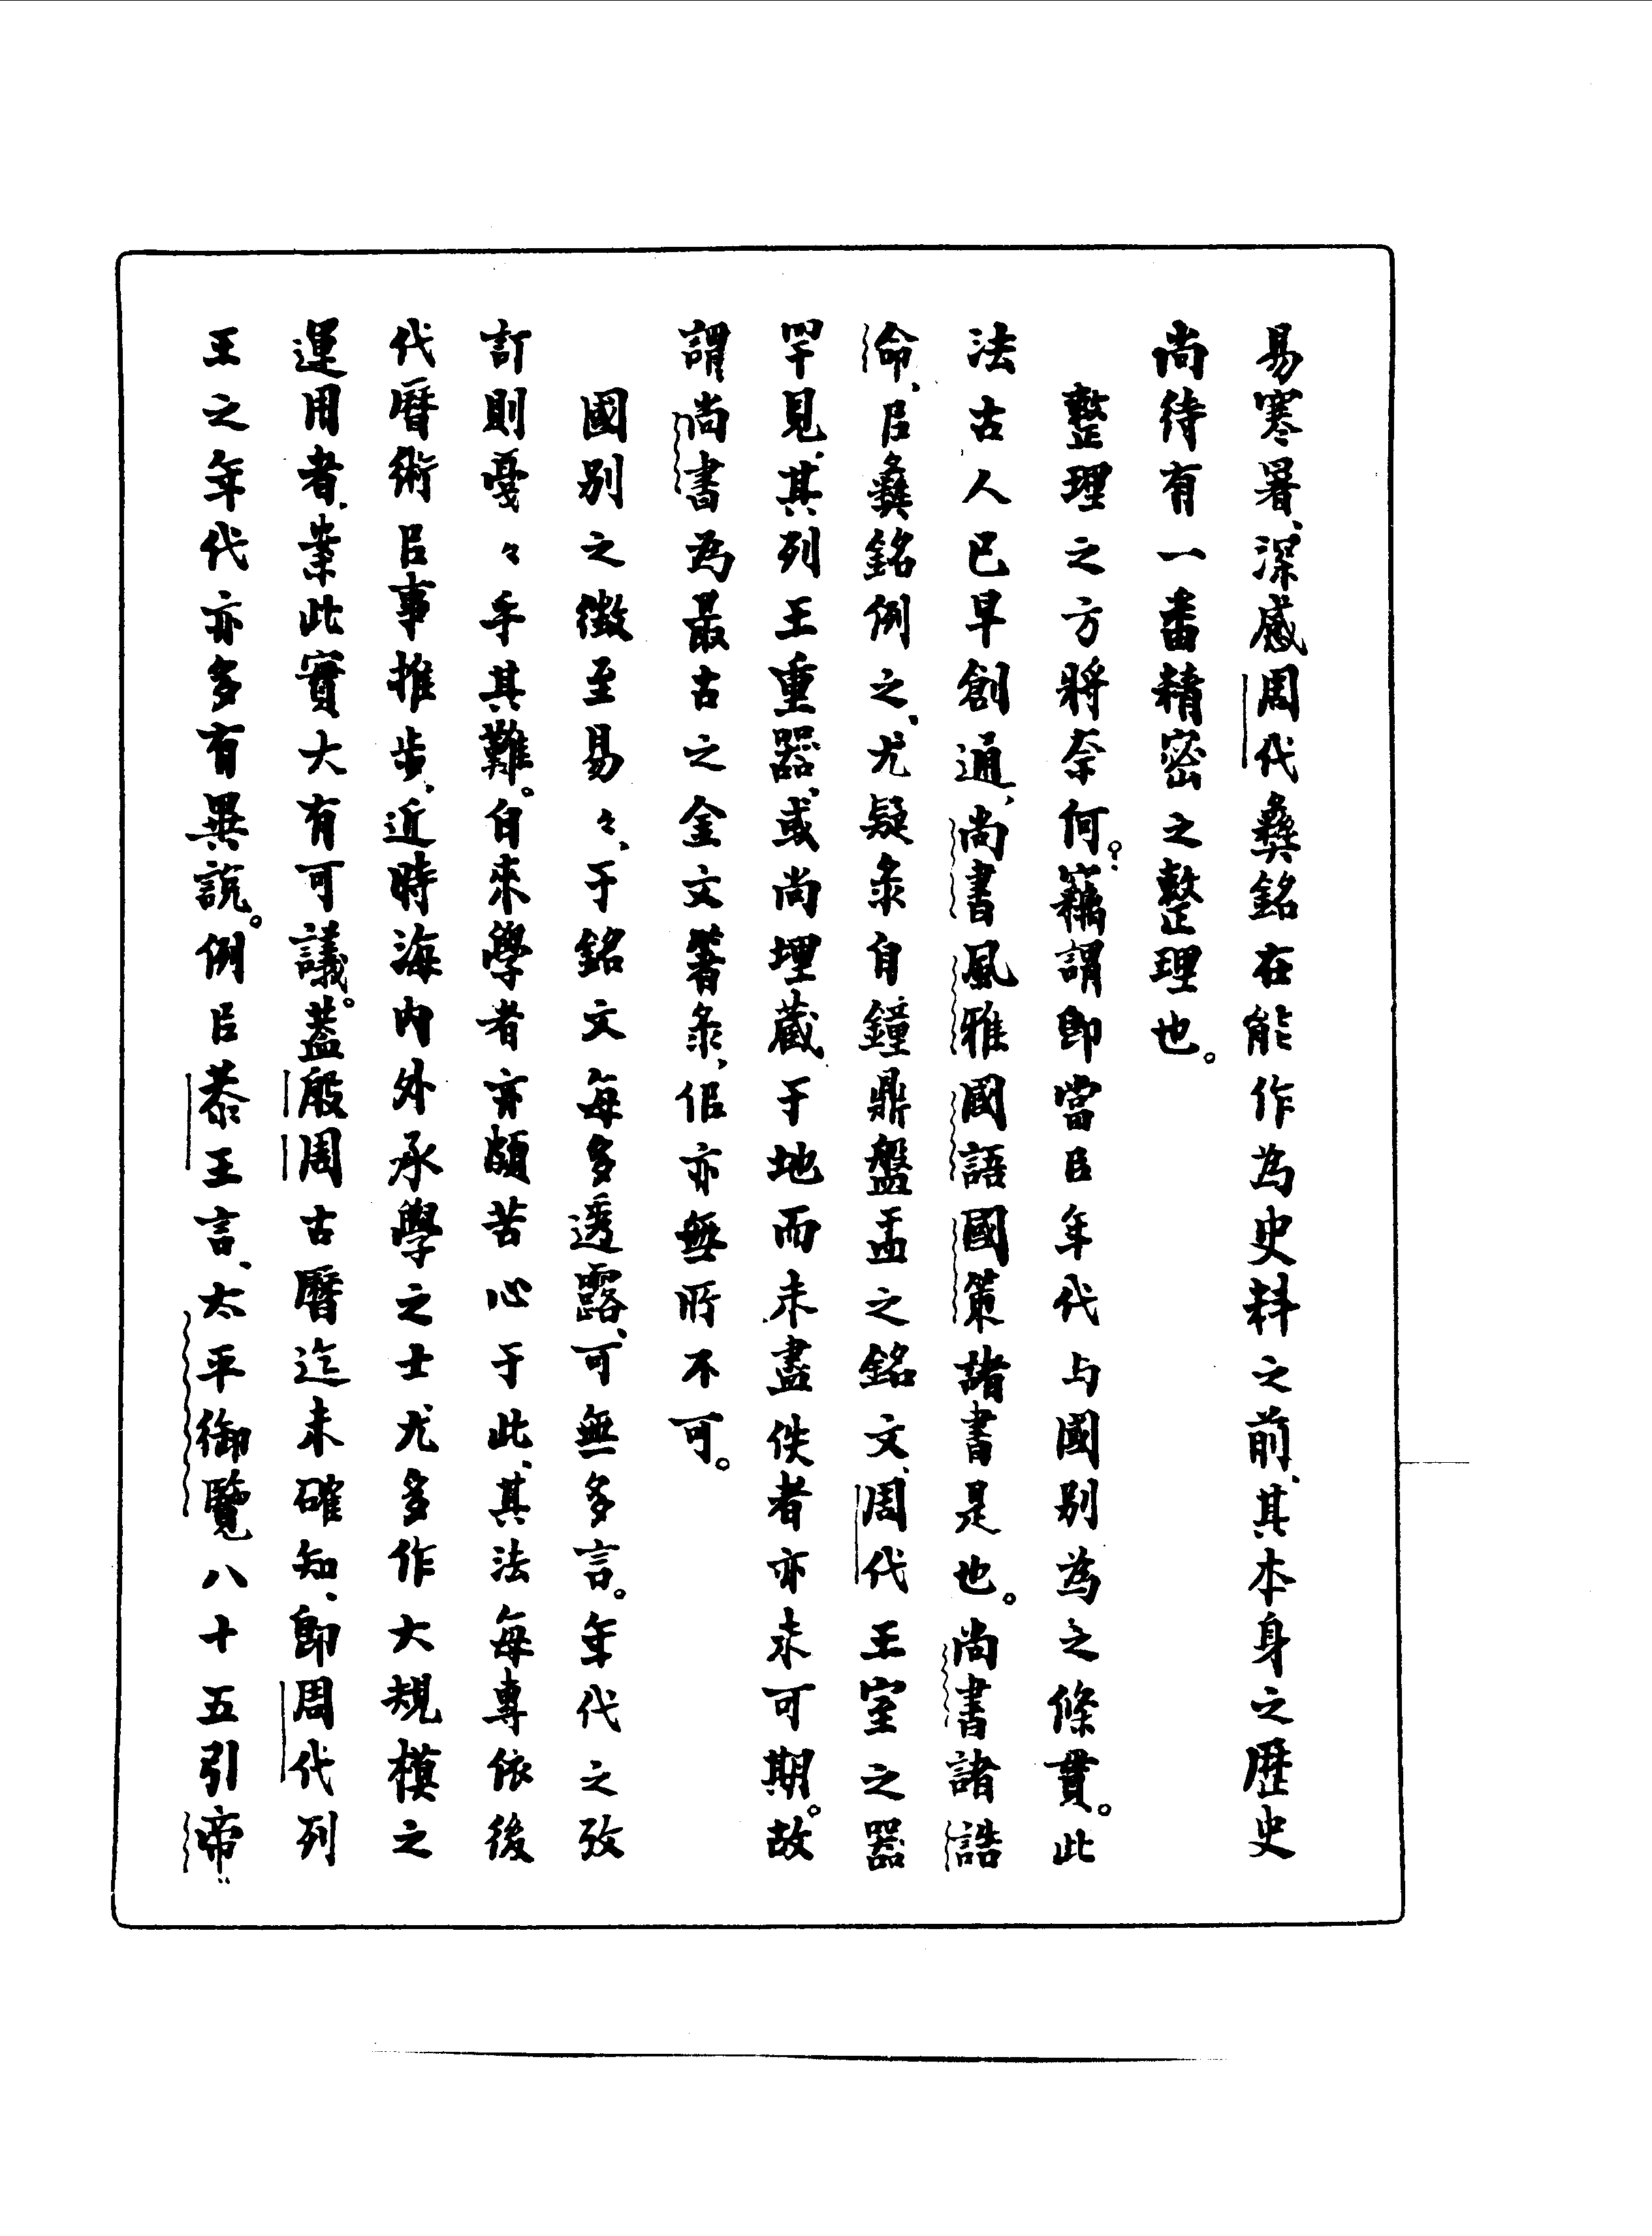 易寒暑、深感周代彝銘在能作為史料之前、其本身之歷史
尚待有一番精密之整理也。
整理之方將奈何？竊謂即當㠯年代与國别為之條貫。此
法古人已早創通、尚書風雅國語國策諸書是也。尚書諸誥
命、㠯彝銘例之、尤疑彔自鐘鼎盤盂之銘文、周代王室之器
罕見、其列王重器、或尚埋蔵于地而未盡佚者亦未可期。故
謂尚書為最古之金文箸彔、㑥亦無所不可。
國别之徵至易々、于銘文每多透露、可無多言。年代之攷
訂則戞々乎其難。自來學者亦頗苦心于此、其法每專依後
代曆術㠯事推步、近時海内外承學之士尤多作大規模之
運用者、案此實大有可議。蓋殷周古曆迄未確知、即周代列
王之年代亦多有異説。例㠯恭王言、太平御覽八十五引帝